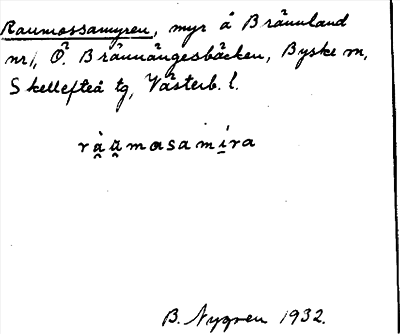 Raumossamyren, myr å Brännland
nr 1, Ö. Brännängesbäcken, Byske m,
Skellefteå tg, Västerb. l.
ràu̯masamíra
B. Nygren 1932.